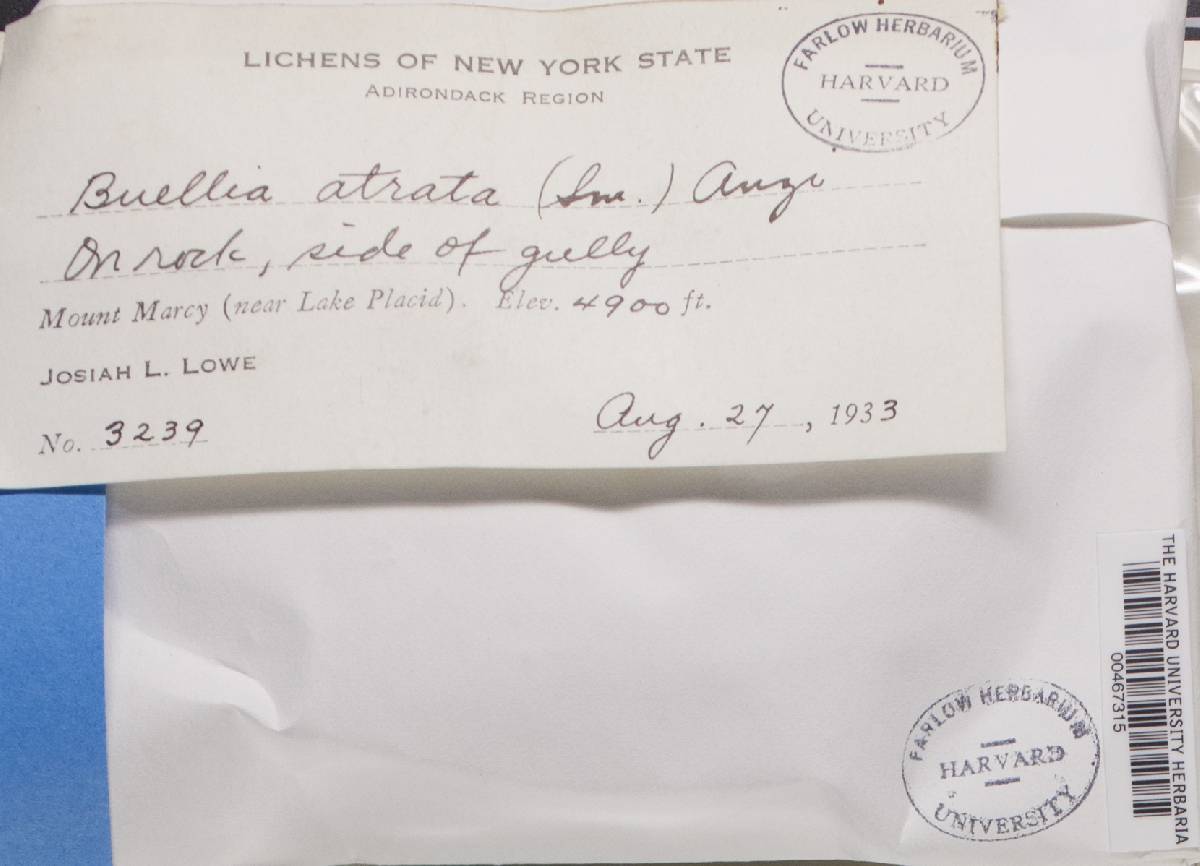 LICHENS OF NEW YORK STATE
ADIRONDACK REGION
FARLOW HERBARIUM
HARVARD
UNIVERSITY
Buellia atrata (Sm.) Anzi
On rock, side of gully
Mount Marcy (near Lake Placid). Elev. 4900 ft.
JOSIAH L. LOWE
No. 3239
Aug. 27, 1933
THE HARVARD UNIVERSITY HERBARIA
00467315
FARLOW HERBARIUM
HARVARD
UNIVERSITY